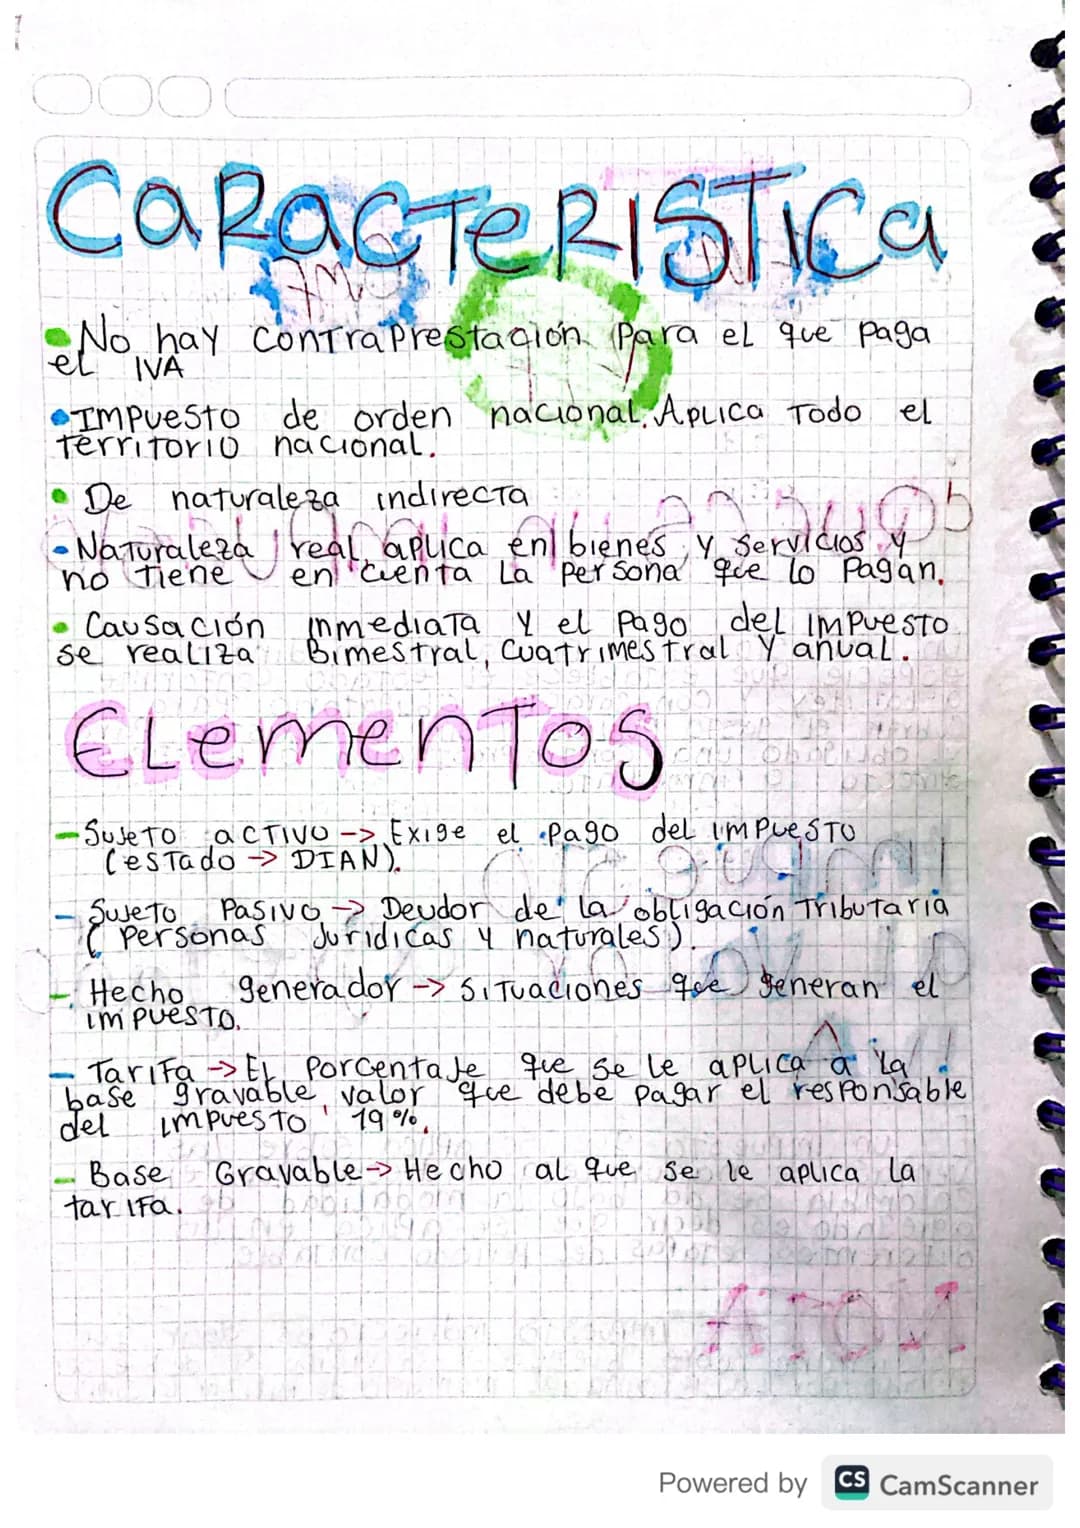 CaRacTeRISTICa
• No hay contraprestación para el que paga
el IVA
• Impuesto de orden nacional. Aplica Todo el
territorio nacional.
• De naturaleza indirecta
• Naturaleza real, aplica en bienes y servicios y
no tiene en cuenta la persona que lo pagan.
• Causación inmediata y el pago del impuesto
se realiza Bimestral, cuatrimestral y anual.
Elementos
- Sujeto activo -> Exige el pago del impuesto
(estado -> DIAN).
- Sujeto Pasivo -> Deudor de la obligación Tributaria
(personas Juridicas y naturales).
- Hecho generador -> Situaciones que generan el
impuesto.
- Tarifa -> El porcentaje que se le aplica a la
base gravable, valor que debe pagar el responsable
del impuesto 19%.
- Base Gravable -> Hecho al que se le aplica la
tarifa.
Powered by CS CamScanner